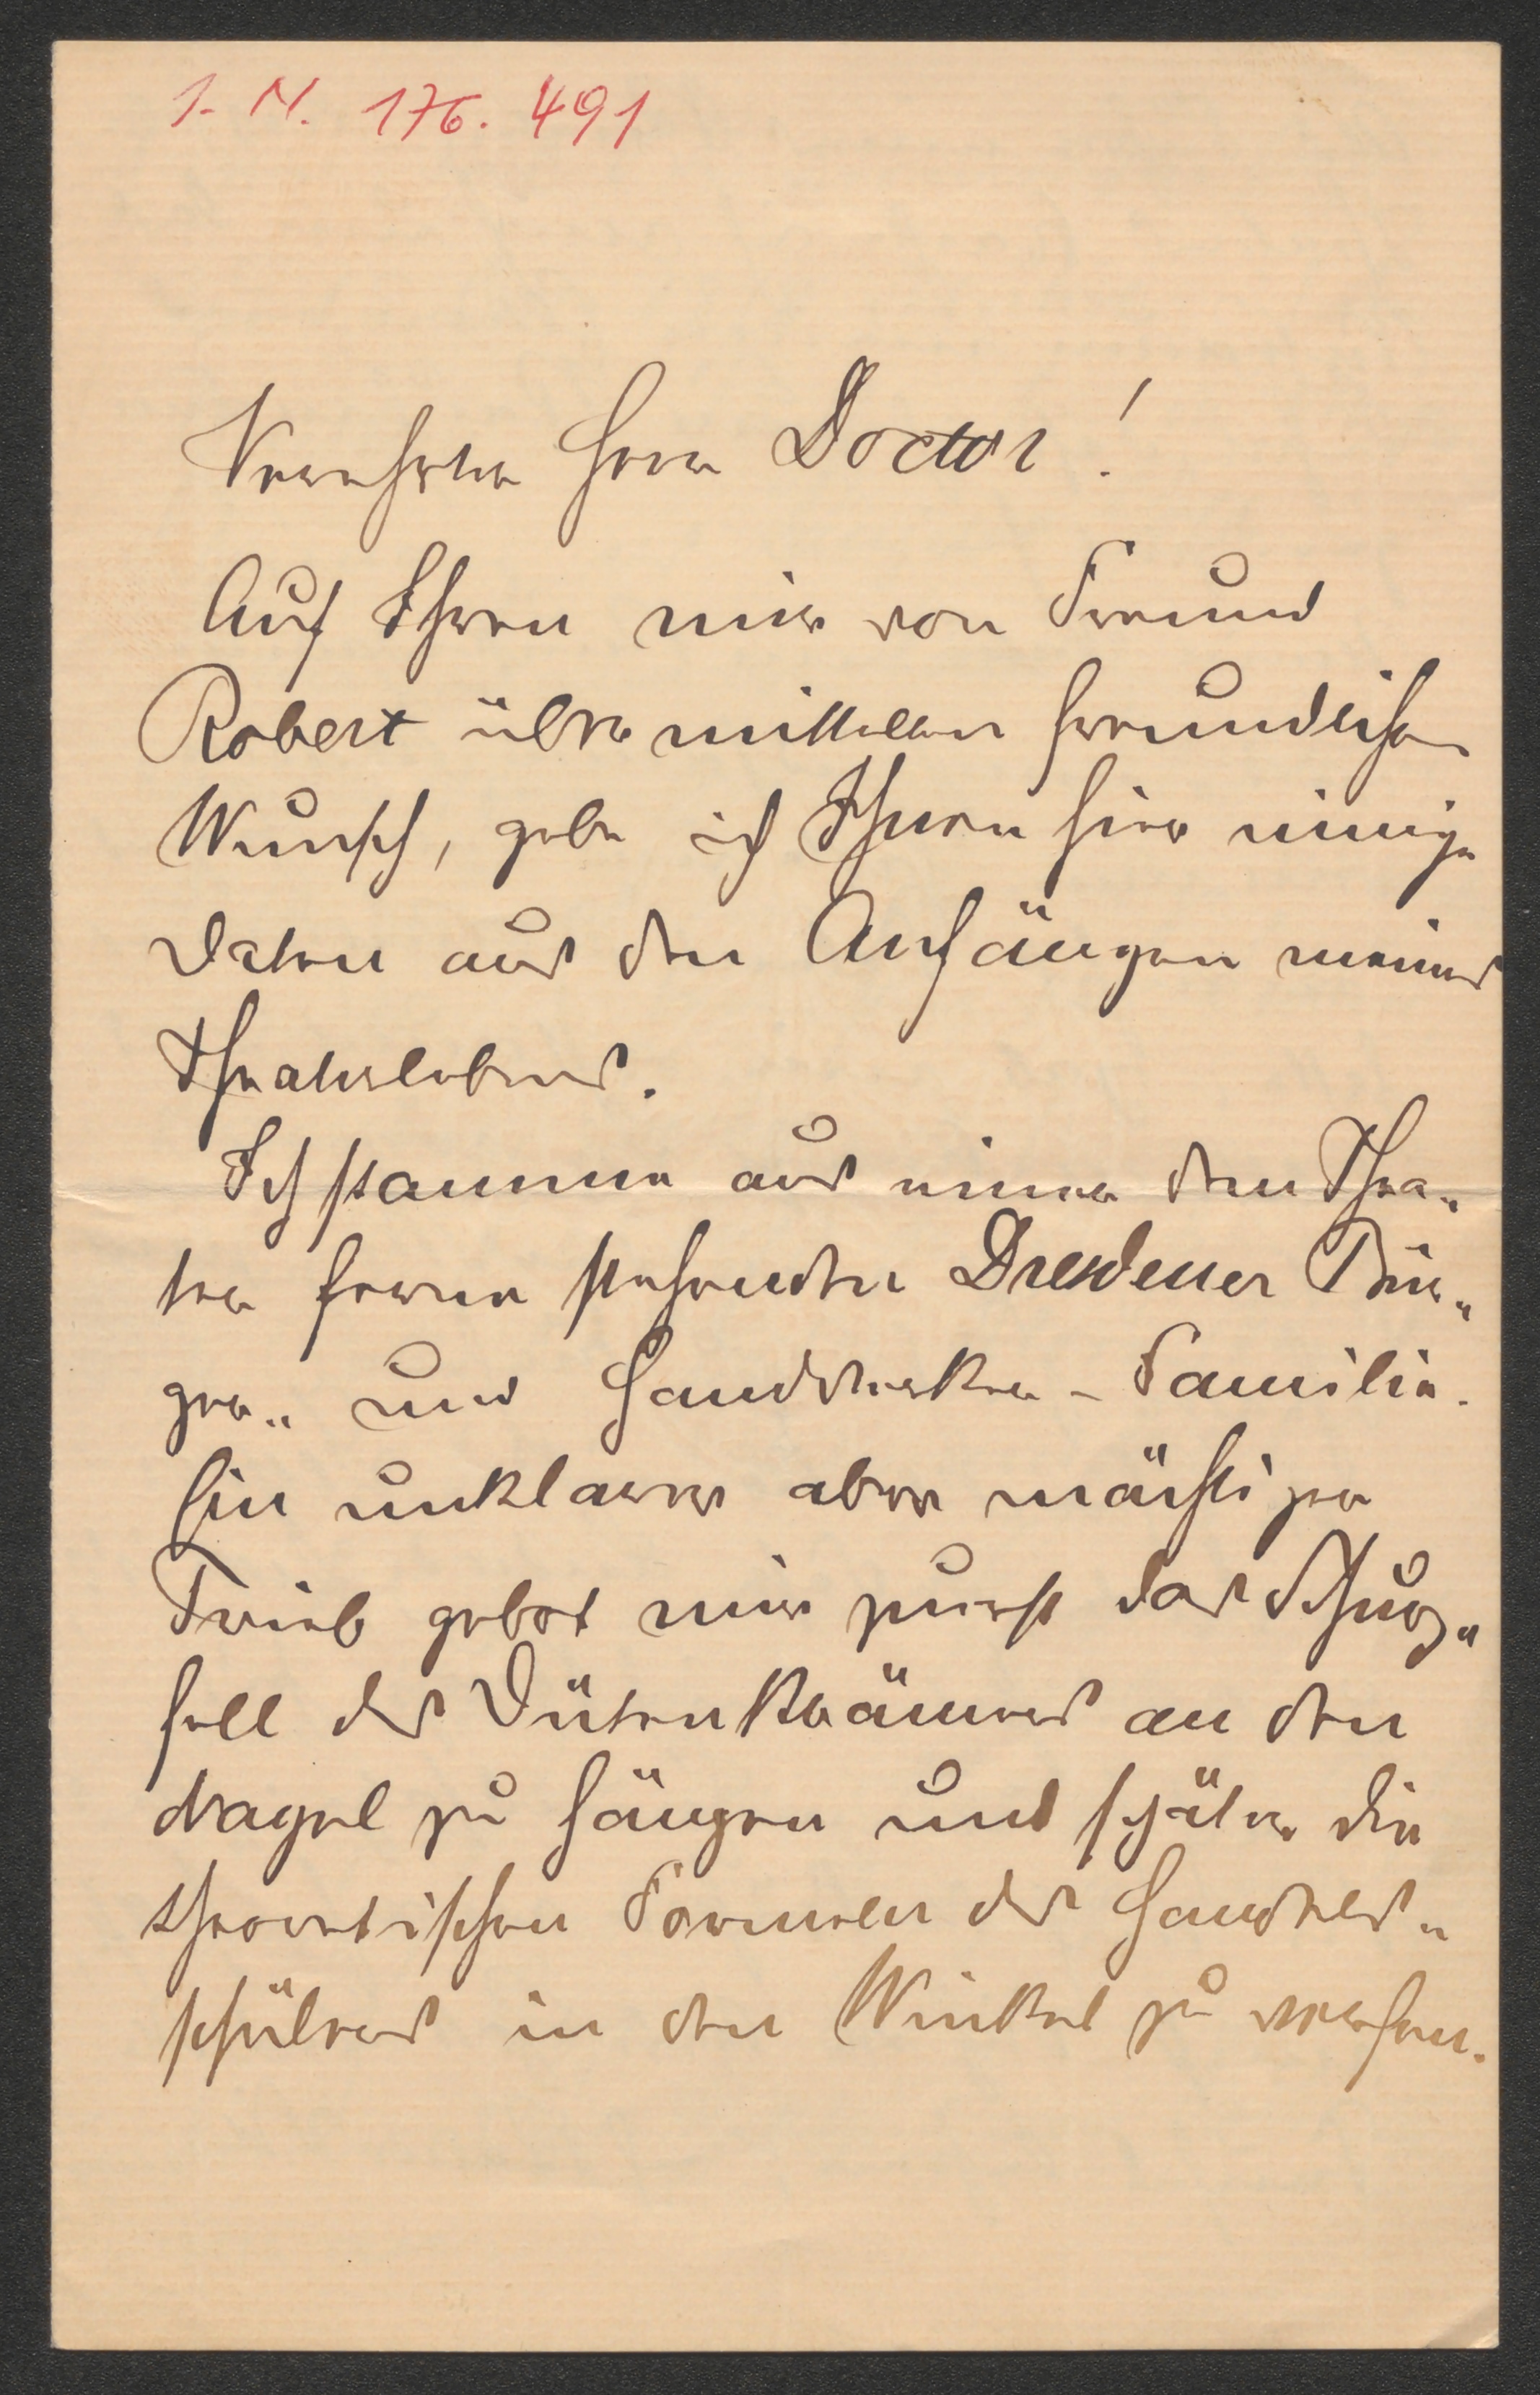 I. N. 176.491
Verehrter Herr Doctor!
Auf Ihren mir von Freund
Robert übermittelten freundlichen
Wunsch, gebe ich Ihnen hier einige
Daten aus den Anfängen meines
Theaterlebens.
Ich stamme aus einer dem Thea„
ter ferne stehenden Dresdener Bür„
ger„ und Handwerker-Familie.
Ein unklarer aber mächtiger
Trieb gebot mir zuerst das Schurz„
fell des Dütenkrämers an den
Nagel zu hängen und später die
theoretischen Formeln des Handels„
schülers in den Winkel zu werfen.